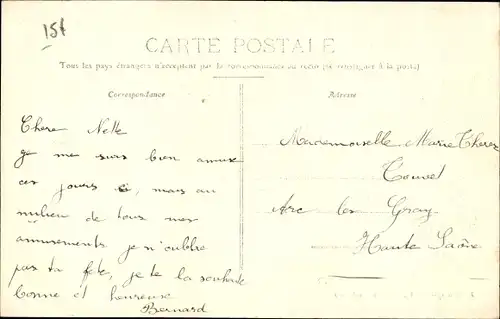 15f
CARTE POSTALE
Tous les pays étrangers n'acceptent pas la correspondance au recto (se renseigner à la poste)
Correspondance
Adresse
Chere Nette
Je me suis bien amusé
ces jours ci, mais au
milieu de tous mes
amusements je n'oublie
pas ta fête, je te la souhaite
bonne et heureuse
Bernard
Mademoiselle Marie Therez
Arc les Gray
Haute Saône